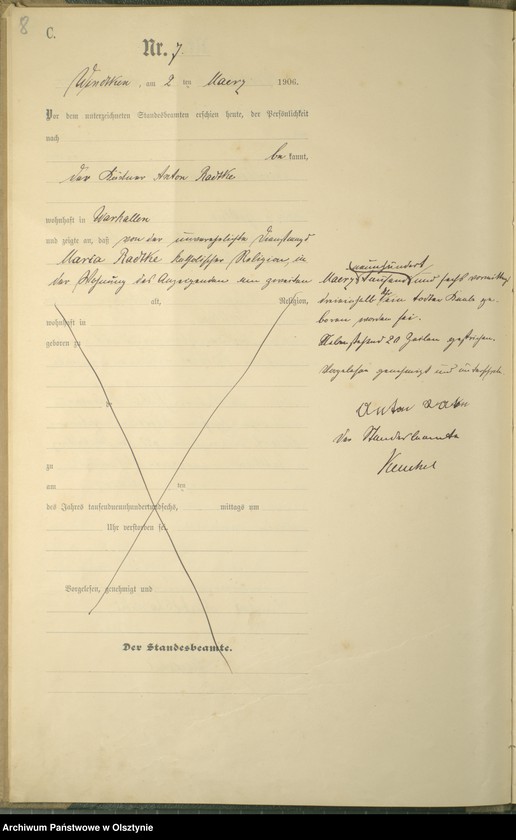 8
C.
Nr. 7.
am 2 ten Maerz 1906.
Vor dem unterzeichneten Standesbeamten erschien heute, der Persönlichkeit
nach
be kannt,
der Anton Radtke
wohnhaft in Warkallen
und zeigte an, daß von der unverehelichte Dienstmagd
Maria Radtke katholischer Religion, in
der Wohnung des Anzeigenden am zweiten
alt, Religion,
wohnhaft in
geboren zu
zu
am ten
des Jahres tausendneunhundertundsechs, mittags um
Uhr verstorben sei.
Vorgelesen, genehmigt und
Der Standesbeamte.
neunhundert
Maerz Tausend und sechs
ein todter Knabe ge-
boren worden sei.
20 Zeilen gestrichen.
Vorgelesen genehmigt und
Anton
Der Standesbeamte
Archiwum Państwowe w Olsztynie